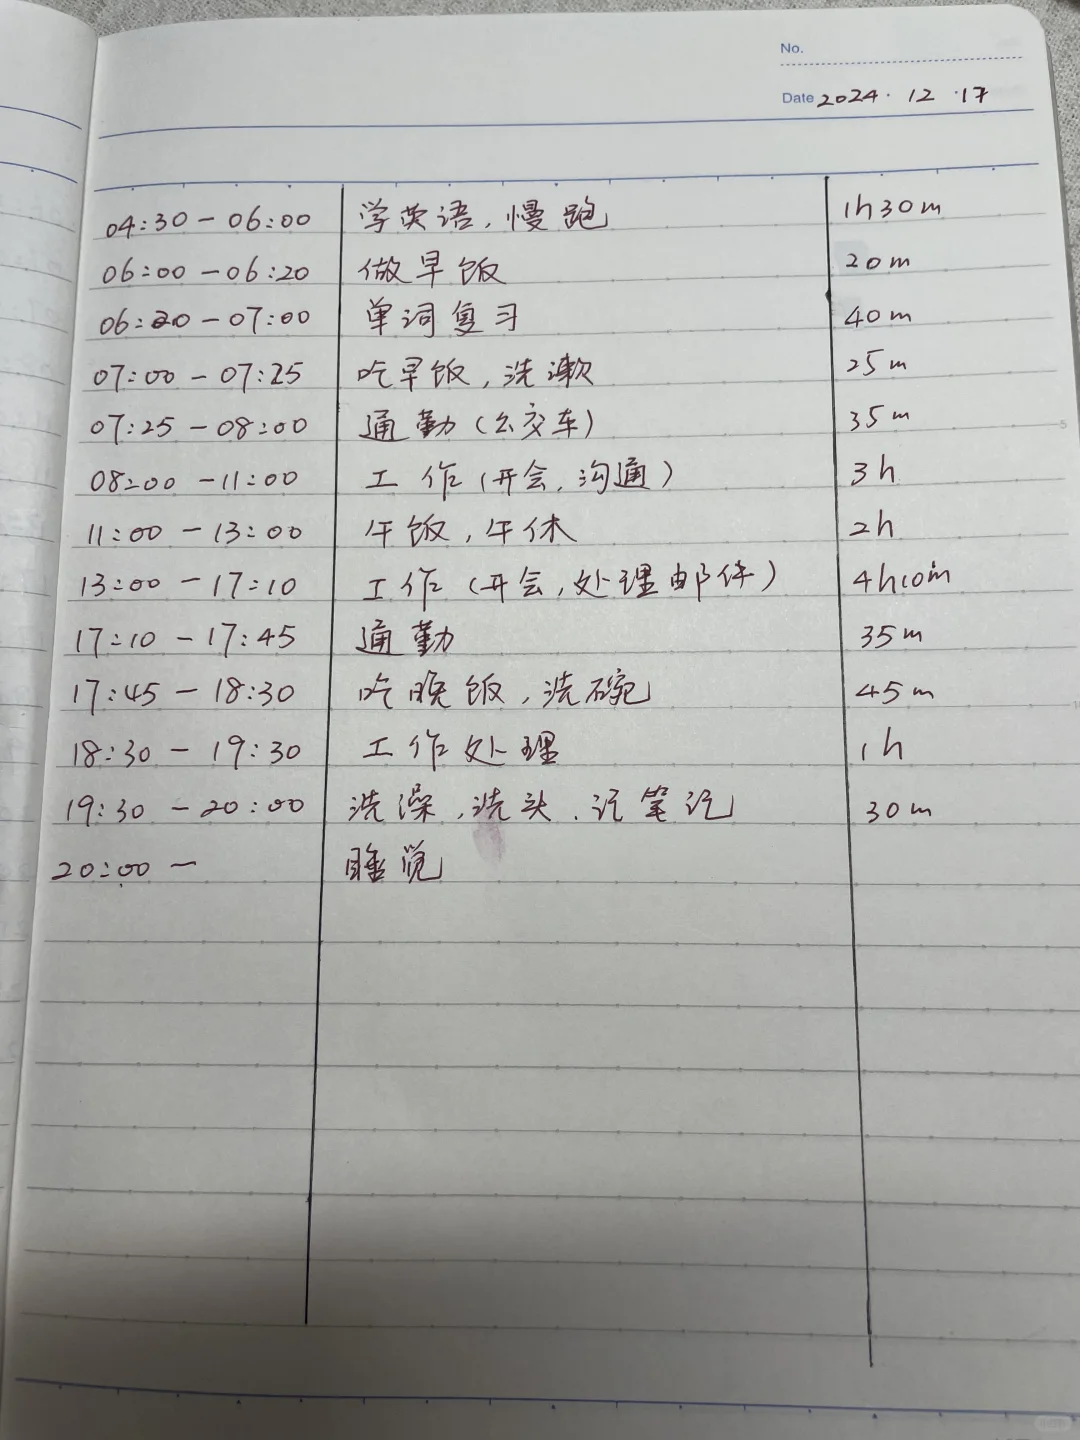 No.
Date 2024. 12 .17
04:30 — 06:00 学英语, 慢跑 1h30m
06:00 — 06:20 做早饭 20m
06:20 — 07:00 单词复习 40m
07:00 — 07:25 吃早饭, 洗漱 25m
07:25 — 08:00 通勤(公交车) 35m
08:00 — 11:00 工作(开会, 沟通) 3h
11:00 — 13:00 午饭, 午休 2h
13:00 — 17:10 工作(开会, 处理邮件) 4h10m
17:10 — 17:45 通勤 35m
17:45 — 18:30 吃晚饭, 洗碗 45m
18:30 — 19:30 工作处理 1h
19:30 — 20:00 洗澡, 洗头、记笔记 30m
20:00 — 睡觉
5